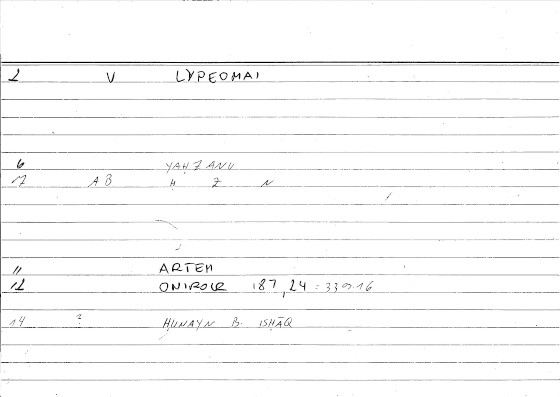 2 V LYPEOMAI
6 YAḤZANU
7 AB Ḥ Z N
11 ARTEM
12 ONIROCR 187,24 : 339.16
14 ? ḤUNAYN B. ISḤĀQ